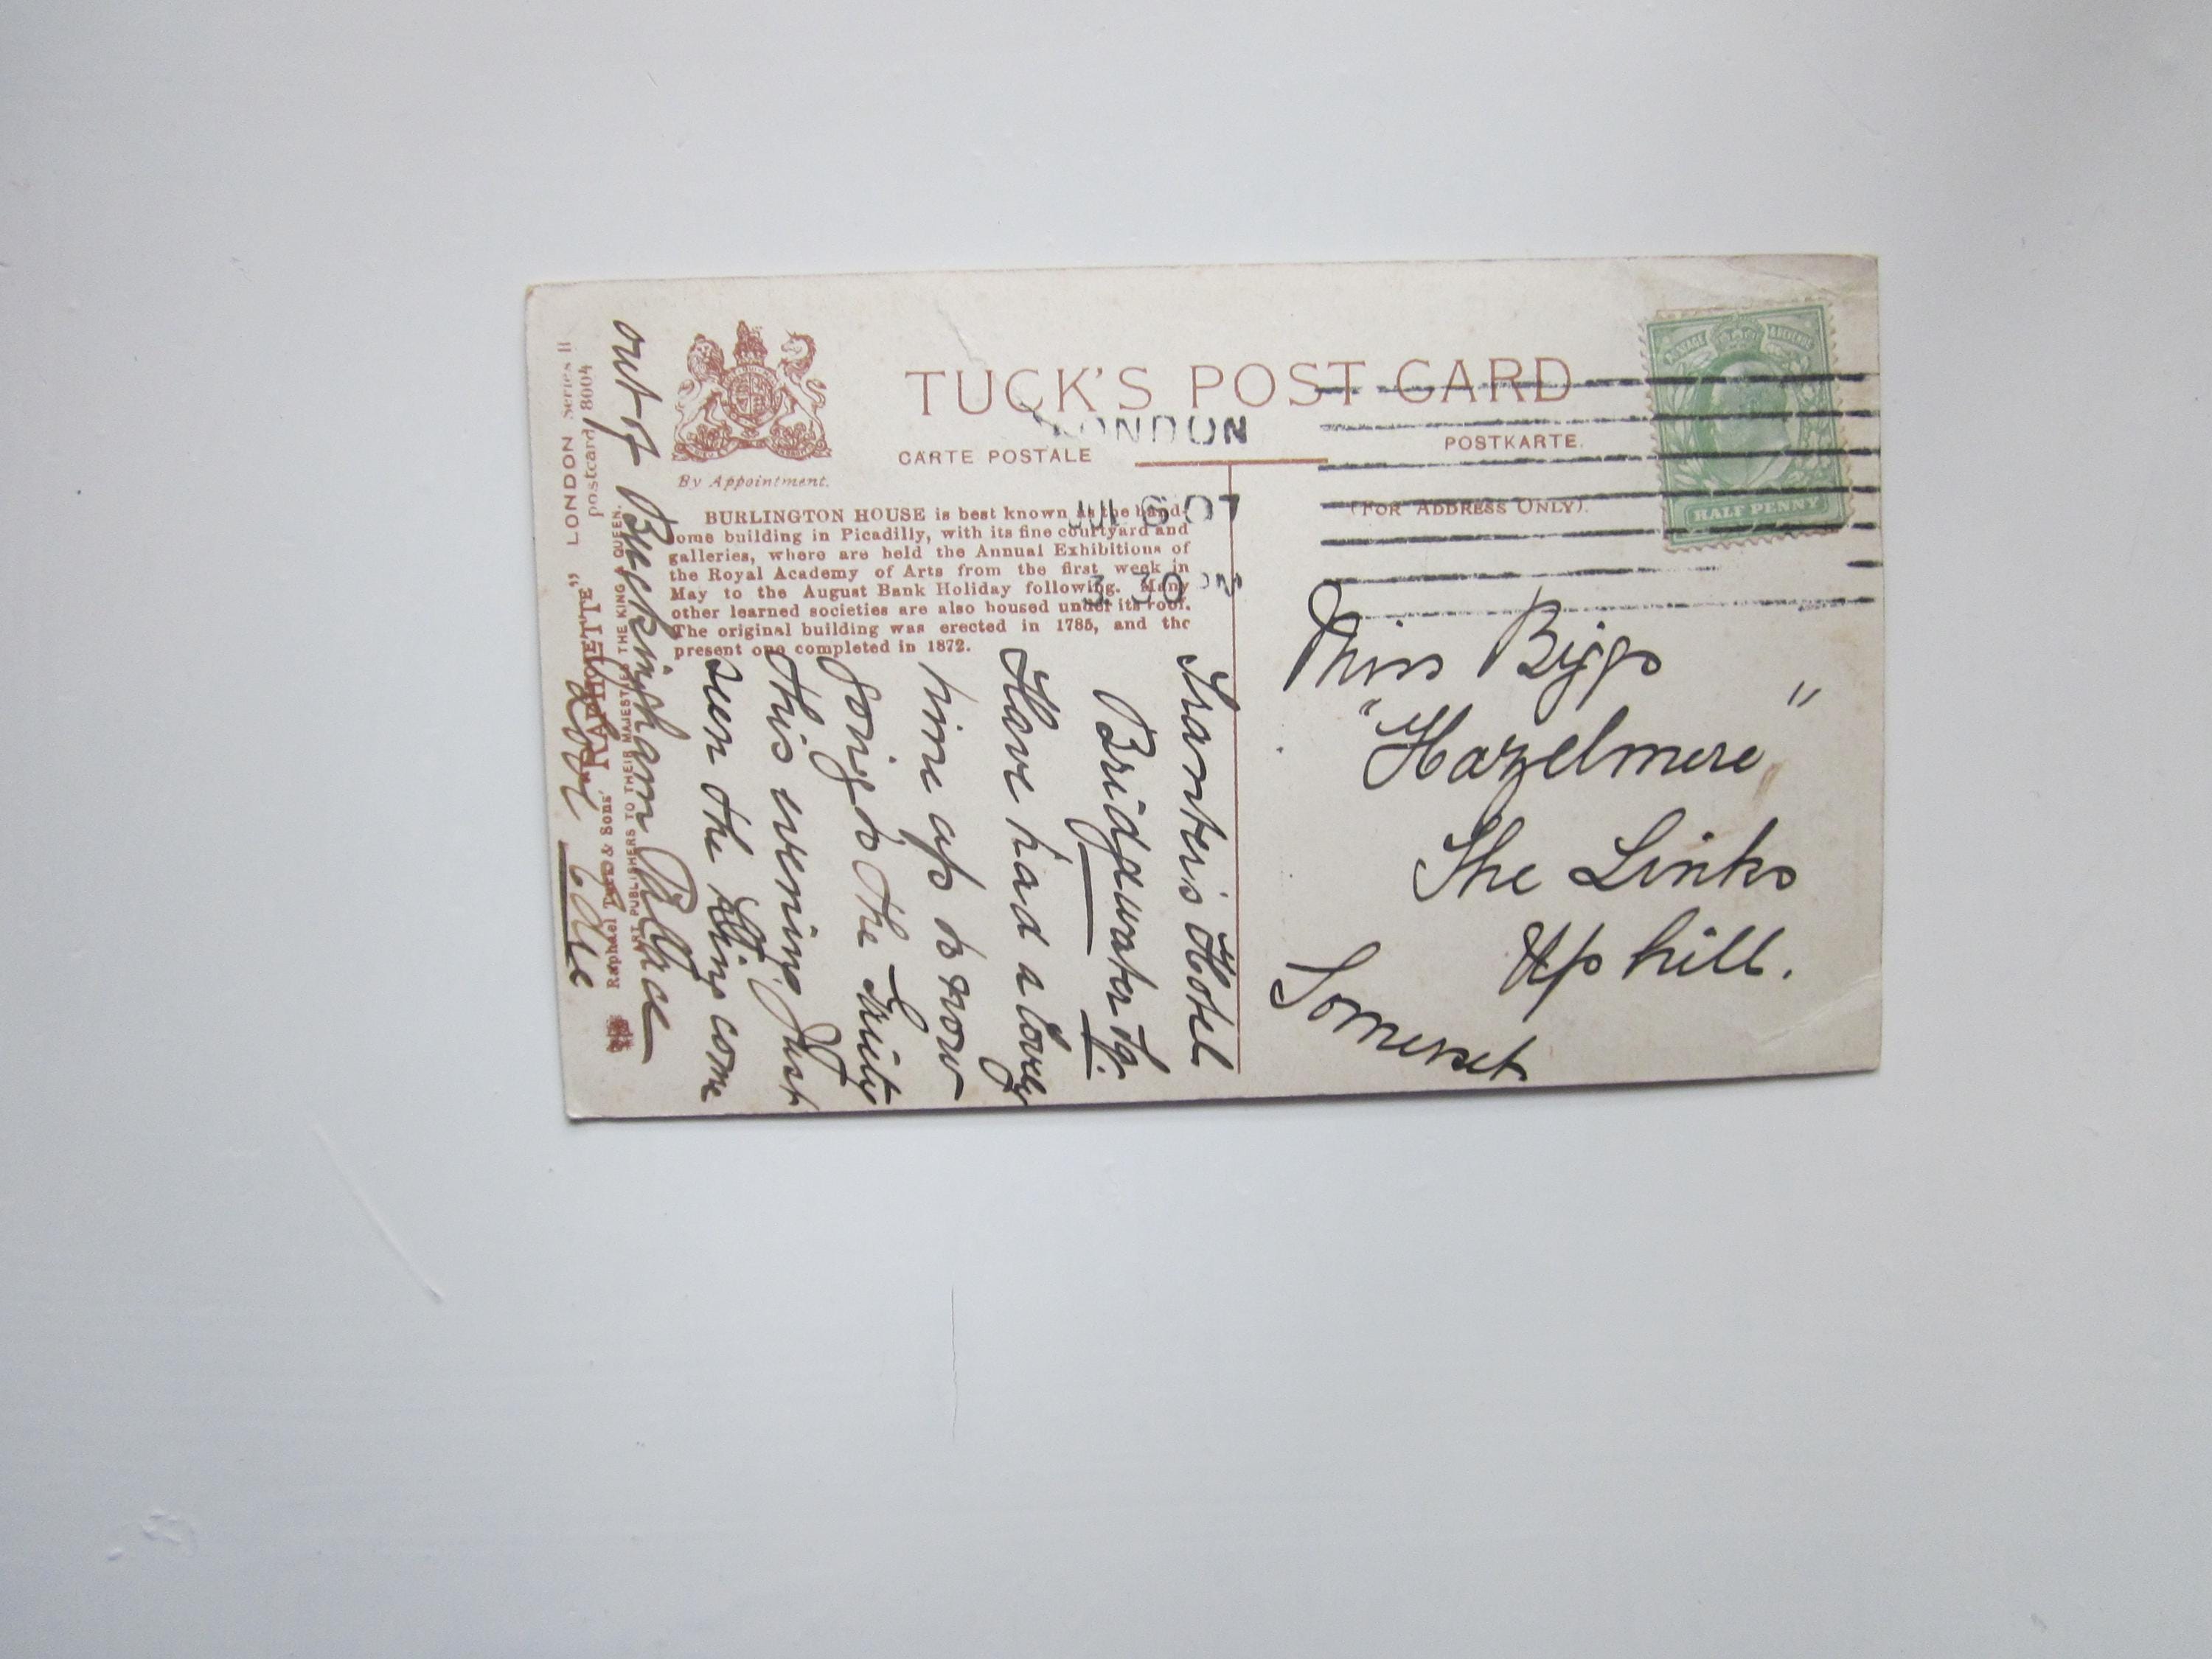 TUCK'S POST CARD
CARTE POSTALE
POSTKARTE.
(FOR ADDRESS ONLY).
By Appointment.
LONDON
JUL 6 07
3.30 PM
POSTAGE & REVENUE
HALF PENNY
BURLINGTON HOUSE is best known as the hand-
ome building in Picadilly, with its fine courtyard and
galleries, where are held the Annual Exhibitions of
the Royal Academy of Arts from the first week in
May to the August Bank Holiday following. Many
other learned societies are also housed under its roof.
The original building was erected in 1785, and the
present one completed in 1872.
Tranter's Hotel
Bridgwater Sq.
Have had a lovely
time up to now
going to the
this evening Just
seen the King come
out of Buckingham Palace
Love Edie
Miss Biggs
"Hazelmere"
The Links
Uphill.
Somerset
Raphael Tuck & Sons' "RAPHOTETTE" LONDON Series II
postcard 8004
ART PUBLISHERS TO THEIR MAJESTIES THE KING & QUEEN.